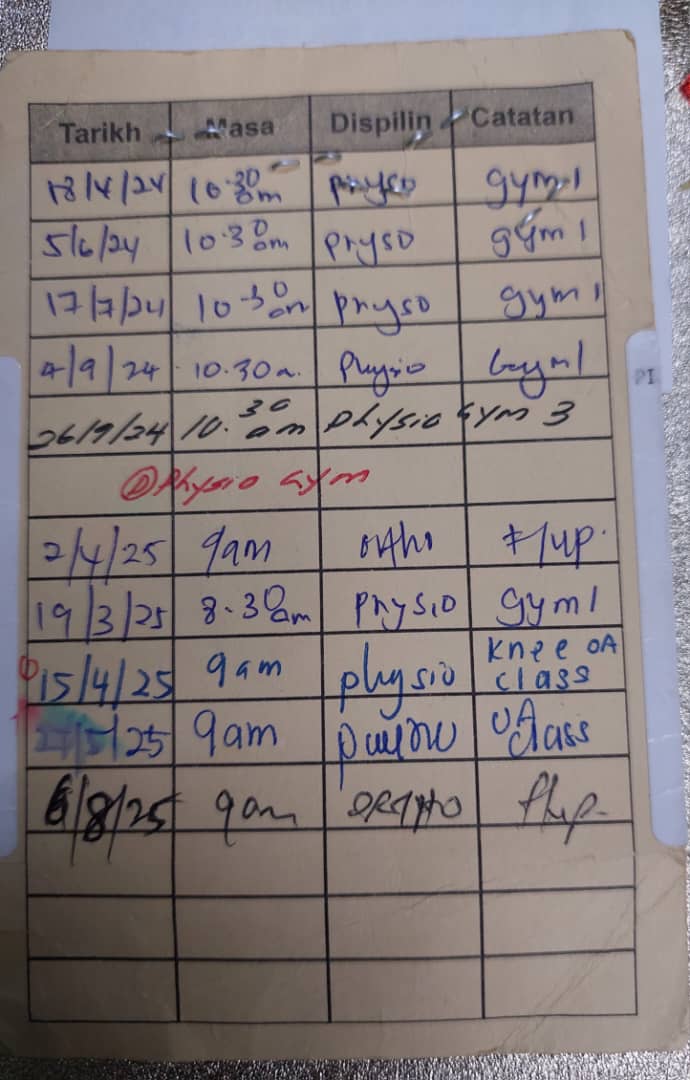 Tarikh Masa Dispilin Catatan
18/4/24 10.30am physo gym 1
5/6/24 10.30am physo gym 1
17/7/24 10.30am physo gym 1
4/9/24 10.30a. Physio Gym 1
26/9/24 10.30am physio Gym 3
@ Physio Gym
2/4/25 9am ortho F/up.
19/3/25 8.30am Physio gym 1
15/4/25 9am physio Knee OA class
27/5/25 9am OA class
6/8/25 9am ORTHO f/up
PI